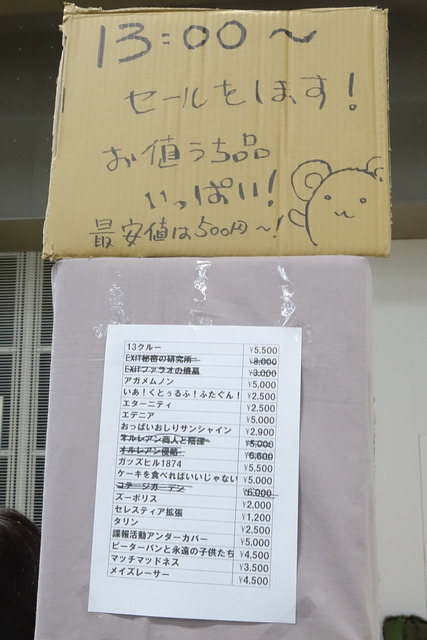 13:00～
セールをします!
お値うち品
いっぱい!
最安値は500円～!
13クルー ¥5,500
EXIT秘密の研究所 ¥8,000
EXITファラオの墳墓 ¥3,000
アガメムノン ¥5,000
いあ!くとぅるふ!ふたぐん! ¥2,500
エターニティ ¥2,500
エデニア ¥5,000
おっぱいおしりサンシャイン ¥2,900
オルレアン商人と陰謀 ¥5,000
オルレアン侵略 ¥6,600
ガッズヒル1874 ¥5,500
ケーキを食べればいいじゃない ¥5,000
コテージガーデン ¥6,000
ズーポリス ¥2,000
セレスティア拡張 ¥1,200
タリン ¥2,500
諜報活動アンダーカバー ¥5,000
ピーターパンと永遠の子供たち ¥4,500
マッチマッドネス ¥3,500
メイズレーサー ¥4,500